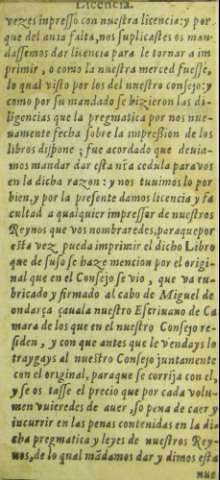 Licencia.
vezes impresso con nuestra licencia: y por
que del auia falta, nos suplicastes os man-
dassemos dar licencia para le tornar a im
primir, o como la nuestra merced fuesse,
lo qual visto por los del nuestro consejo: y
como por su mandado se hizieron las di-
ligencias que la pregmatica por nos nue-
uamente fecha sobre la impression de los
libros dispone; fue acordado que deuia-
mos mandar dar esta nr̃a cedula para vos
en la dicha razon: y nos tuuimos lo por
bien, y por la presente damos licencia y fa
cultad a qualquier impressor de nuestros
Reynos que vos nombraredes, paraque por
esta vez pueda imprimir el dicho Libro
que de suso se haze mencion por el origi-
nal que en el Consejo se vio, que va ru-
bricado y firmado al cabo de Miguel de
ondarça çauala nuestro Escriuano de Ca
mara de los que en el nuestro Consejo re-
siden, y con que antes que le vendays lo
traygays al nuestro Consejo juntamente
con el original, paraque se corrija con el,
y se os tasse el precio que por cada volu-
men vuieredes de auer, so pena de caer y
incurrir en las penas contenidas en la di-
cha pregmatica y leyes de nuestros Rey-
nos, de lo qual mãdamos dar y dimos esta
nue